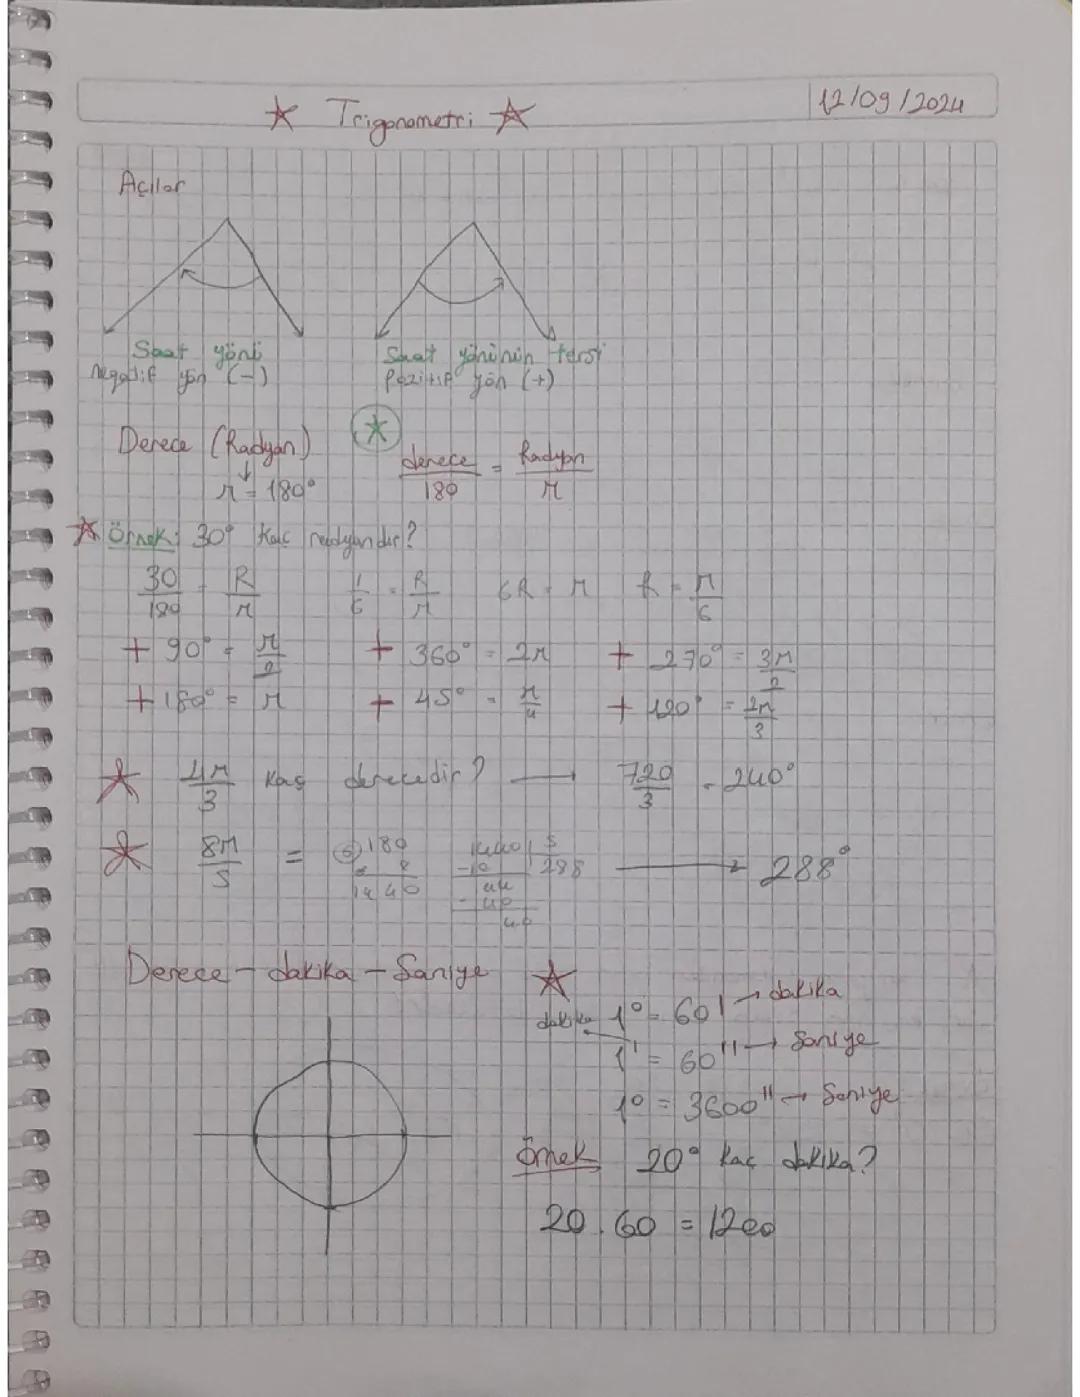 ☆ Trigonometri ☆
12/09/2024
Açılar
Saat yönü
negatif yön (-)
Saat yönünün tersi
pozitif yön (+)
Derece (Radyan)
π = 180°
derece/180 = Radyan/π
☆ Örnek: 30° kaç radyandır?
30/180 = R/π 1/6 = R/π 6R = π R = π/6
+ 90° = π/2 + 360° = 2π + 270° = 3π/2
+ 180° = π + 45° = π/4 + 120° = 2π/3
☆ 4π/3 kaç derecedir? → 720/3 = 240°
☆ 8π/5 = → 288°
6 180
8
1440
1440 | 5
288
-10
44
-40
40
Derece - dakika - Saniye ☆
1° = 60' → dakika
dakika
1' = 60'' → Saniye
1° = 3600'' → Saniye
Örnek 20° kaç dakika?
20 . 60 = 1200